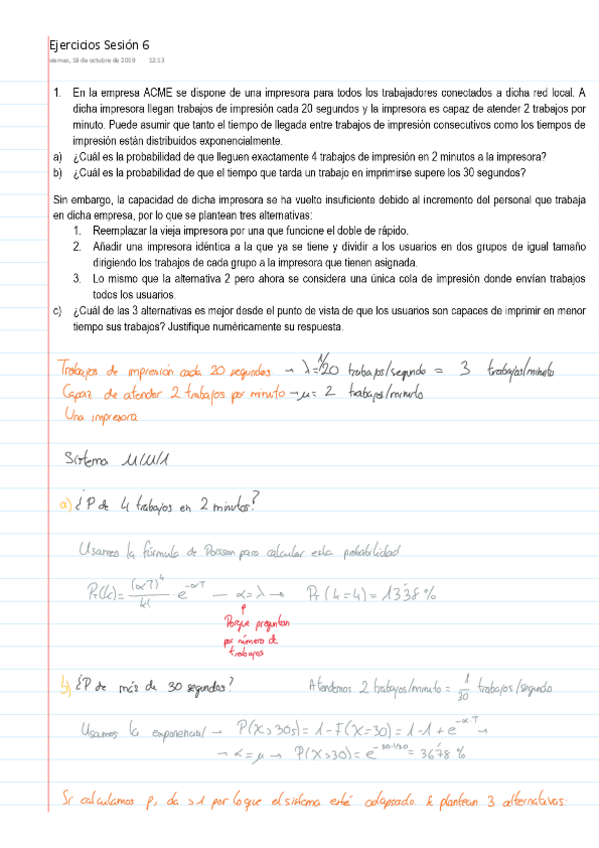 Ejercicios Sesión 6
viernes, 18 de octubre de 2019 12:13
1. En la empresa ACME se dispone de una impresora para todos los trabajadores conectados a dicha red local. A
dicha impresora llegan trabajos de impresión cada 20 segundos y la impresora es capaz de atender 2 trabajos por
minuto. Puede asumir que tanto el tiempo de llegada entre trabajos de impresión consecutivos como los tiempos de
impresión están distribuidos exponencialmente.
a) ¿Cuál es la probabilidad de que lleguen exactamente 4 trabajos de impresión en 2 minutos a la impresora?
b) ¿Cuál es la probabilidad de que el tiempo que tarda un trabajo en imprimirse supere los 30 segundos?
Sin embargo, la capacidad de dicha impresora se ha vuelto insuficiente debido al incremento del personal que trabaja
en dicha empresa, por lo que se plantean tres alternativas:
1. Reemplazar la vieja impresora por una que funcione el doble de rápido.
2. Añadir una impresora idéntica a la que ya se tiene y dividir a los usuarios en dos grupos de igual tamaño
dirigiendo los trabajos de cada grupo a la impresora que tienen asignada.
3. Lo mismo que la alternativa 2 pero ahora se considera una única cola de impresión donde envían trabajos
todos los usuarios.
c) ¿Cuál de las 3 alternativas es mejor desde el punto de vista de que los usuarios son capaces de imprimir en menor
tiempo sus trabajos? Justifique numéricamente su respuesta.
Trabajos de impresión cada 20 segundos → λ=1/20 trabajos/segundo = 3 trabajos/minuto
Capaz de atender 2 trabajos por minuto → μ= 2 trabajos/minuto
Una impresora
Sistema M/M/1
a) ¿P de 4 trabajos en 2 minutos?
Usamos la fórmula de Poisson para calcular esta probabilidad
Pr(k)= (αT)^k / k! · e^-αT — α=λ → Pr(k=4)=13'38%
Porque preguntan
por número de
trabajos
b) ¿P de más de 30 segundos? Atendemos 2 trabajos/minuto = 1/30 trabajos/segundo
Usamos la exponencial → P(X>30s)=1-F(X=30)=1-1+e^-α·T →
→ α=μ → P(X>30)=e^-30·1/30 = 36'78 %
Si calculamos ρ, da >1 por lo que el sistema está colapsado. Se plantean 3 alternativas: